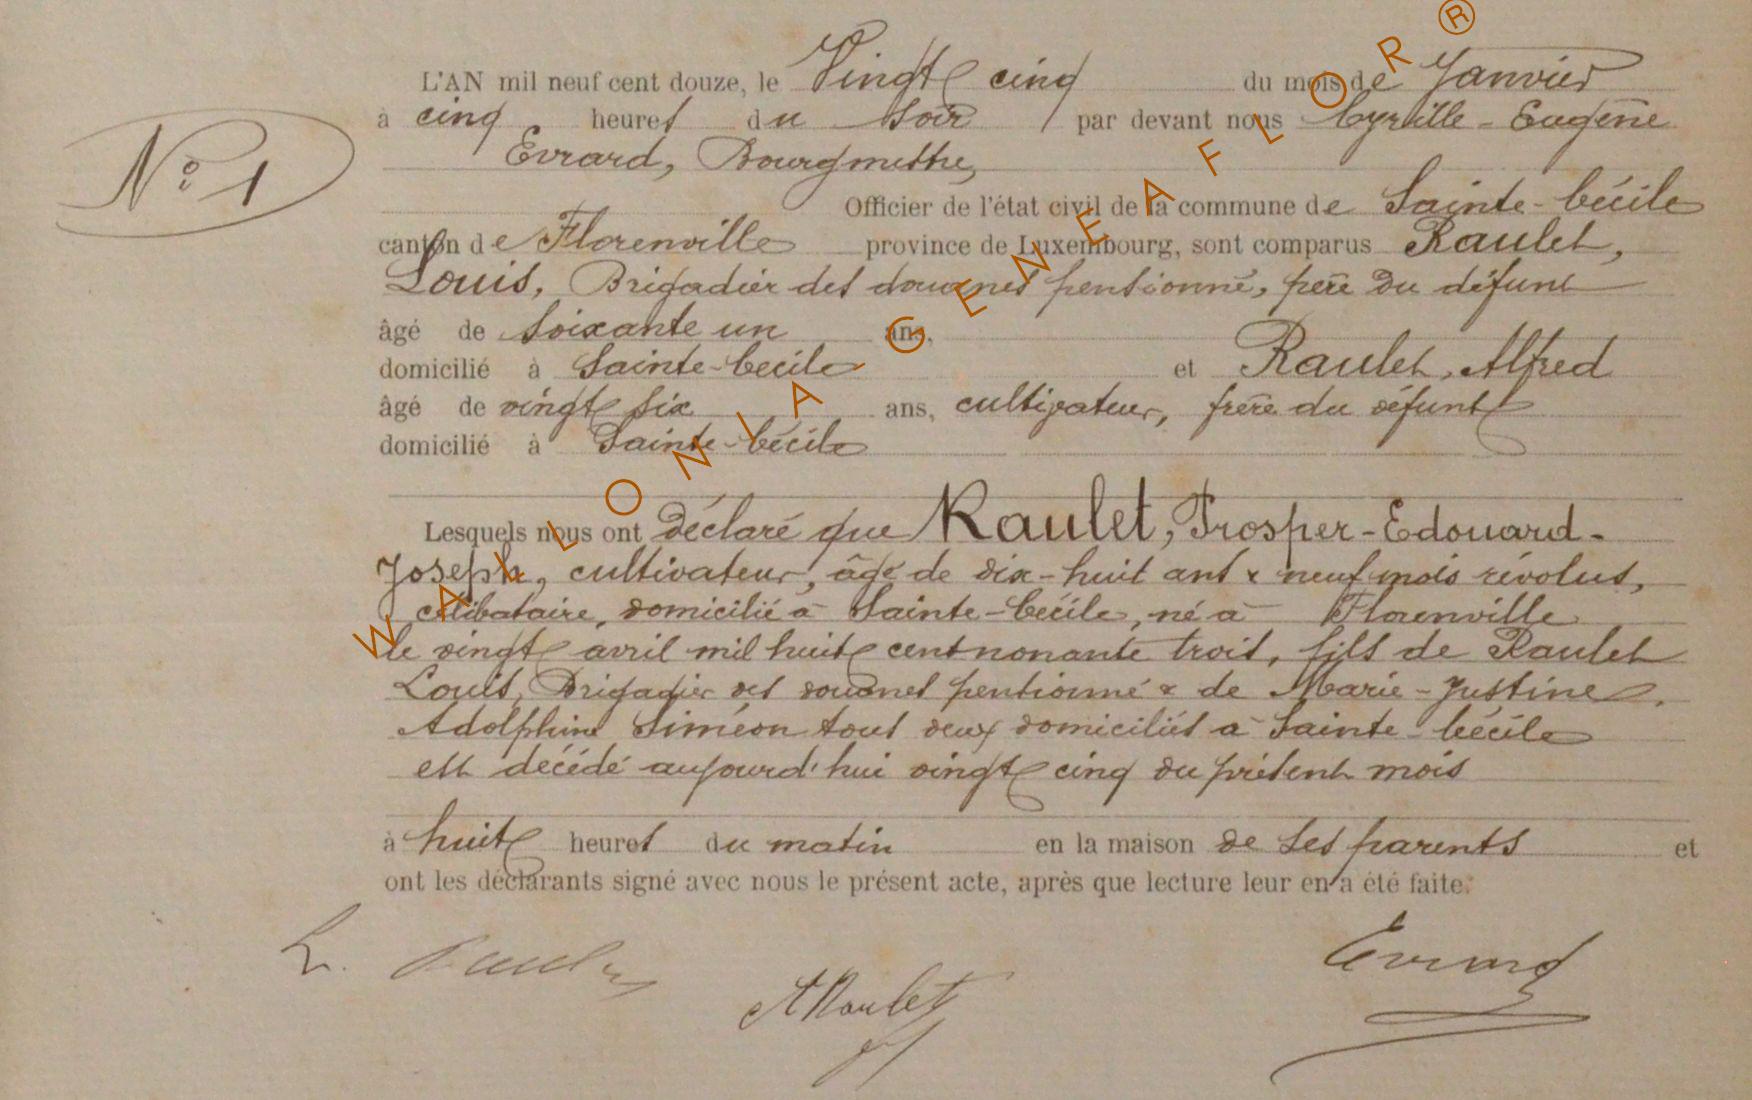 L'AN mil neuf cent douze, le Vingt cinq du mois de Janvier
à cinq heures du soir par devant nous Cyrille-Eugène
Evrard, Bourgmestre,
N° 1
Officier de l'état civil de la commune de Sainte-Cécile
canton de Florenville province de Luxembourg, sont comparus Raulet,
Louis, Brigadier des douanes pensionné, père du défunt
âgé de soixante un ans,
domicilié à Sainte-Cécile et Raulet, Alfred
âgé de vingt six ans, cultivateur, frère du défunt
domicilié à Sainte-Cécile
Lesquels nous ont déclaré que Raulet, Prosper-Edouard-
Joseph, cultivateur, âgé de dix-huit ans & neuf mois révolus,
célibataire, domicilié à Sainte-Cécile, né à Florenville
le vingt avril mil huit cent nonante trois, fils de Raulet
Louis, Brigadier des douanes pensionné & de Marie-Justine
Adolphine Siméon tous deux domiciliés à Sainte-Cécile
est décédé aujourd'hui vingt cinq du présent mois
à huit heures du matin en la maison de ses parents et
ont les déclarants signé avec nous le présent acte, après que lecture leur en a été faite.
L. Raulet
A Raulet
Evrard
WALLONIA GENEAFLOR ®